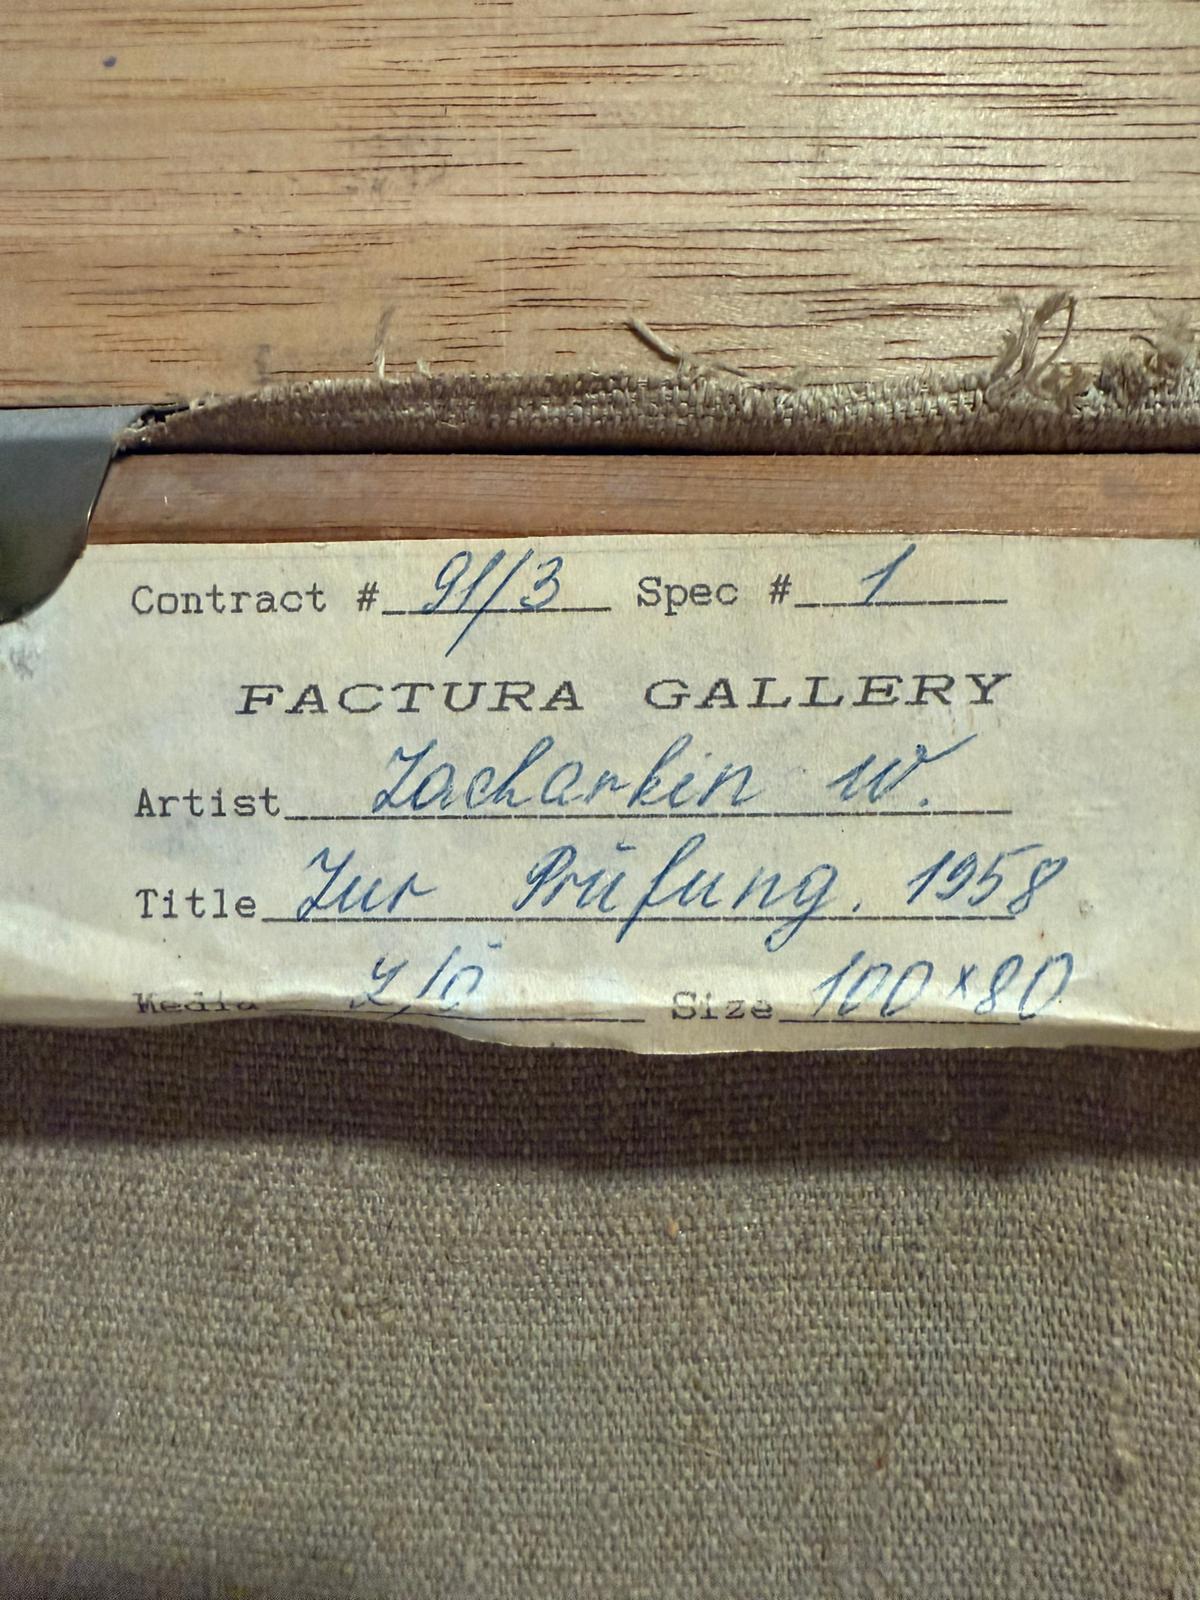 Contract # 91/3 Spec # 1
FACTURA GALLERY
Artist Zacharkin W.
Title Zur Prüfung. 1958
Media L/Ö Size 100x80